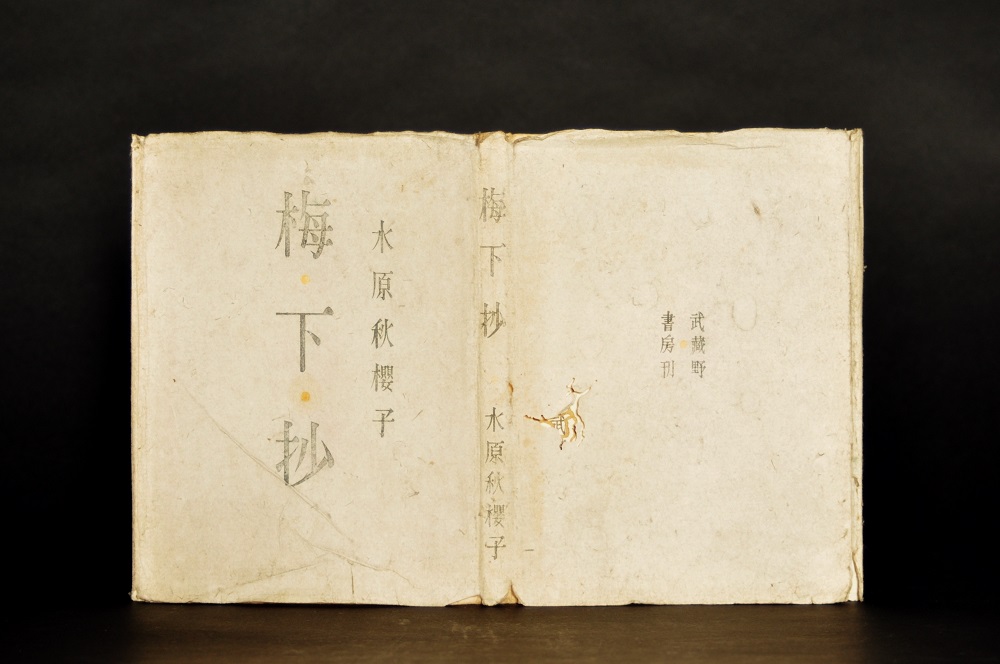 梅・下・抄
水原秋櫻子
梅下抄
水原秋櫻子
武藏野
書房刊
武